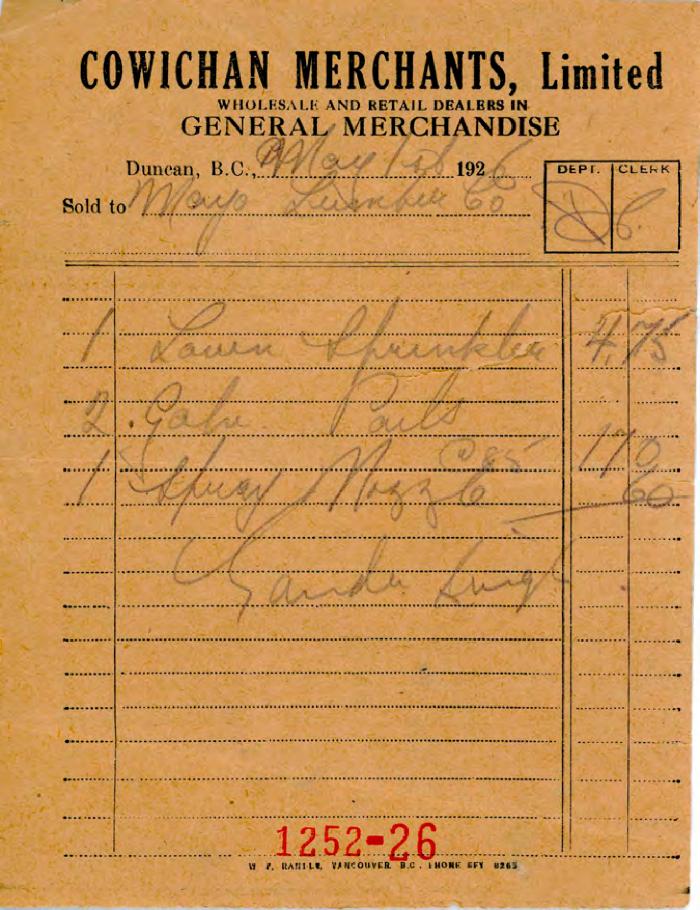 COWICHAN MERCHANTS, Limited
WHOLESALE AND RETAIL DEALERS IN
GENERAL MERCHANDISE
Duncan, B.C., May 1st 1926
DEPT. CLERK
Sold to Mayo Lumber Co
1 Lawn Sprinkler 4.75
2 Galv. Pails
@ 85 1 70
1 Spray Nozzle 60
Singh
1252-26
VANCOUVER, B.C. PHONE